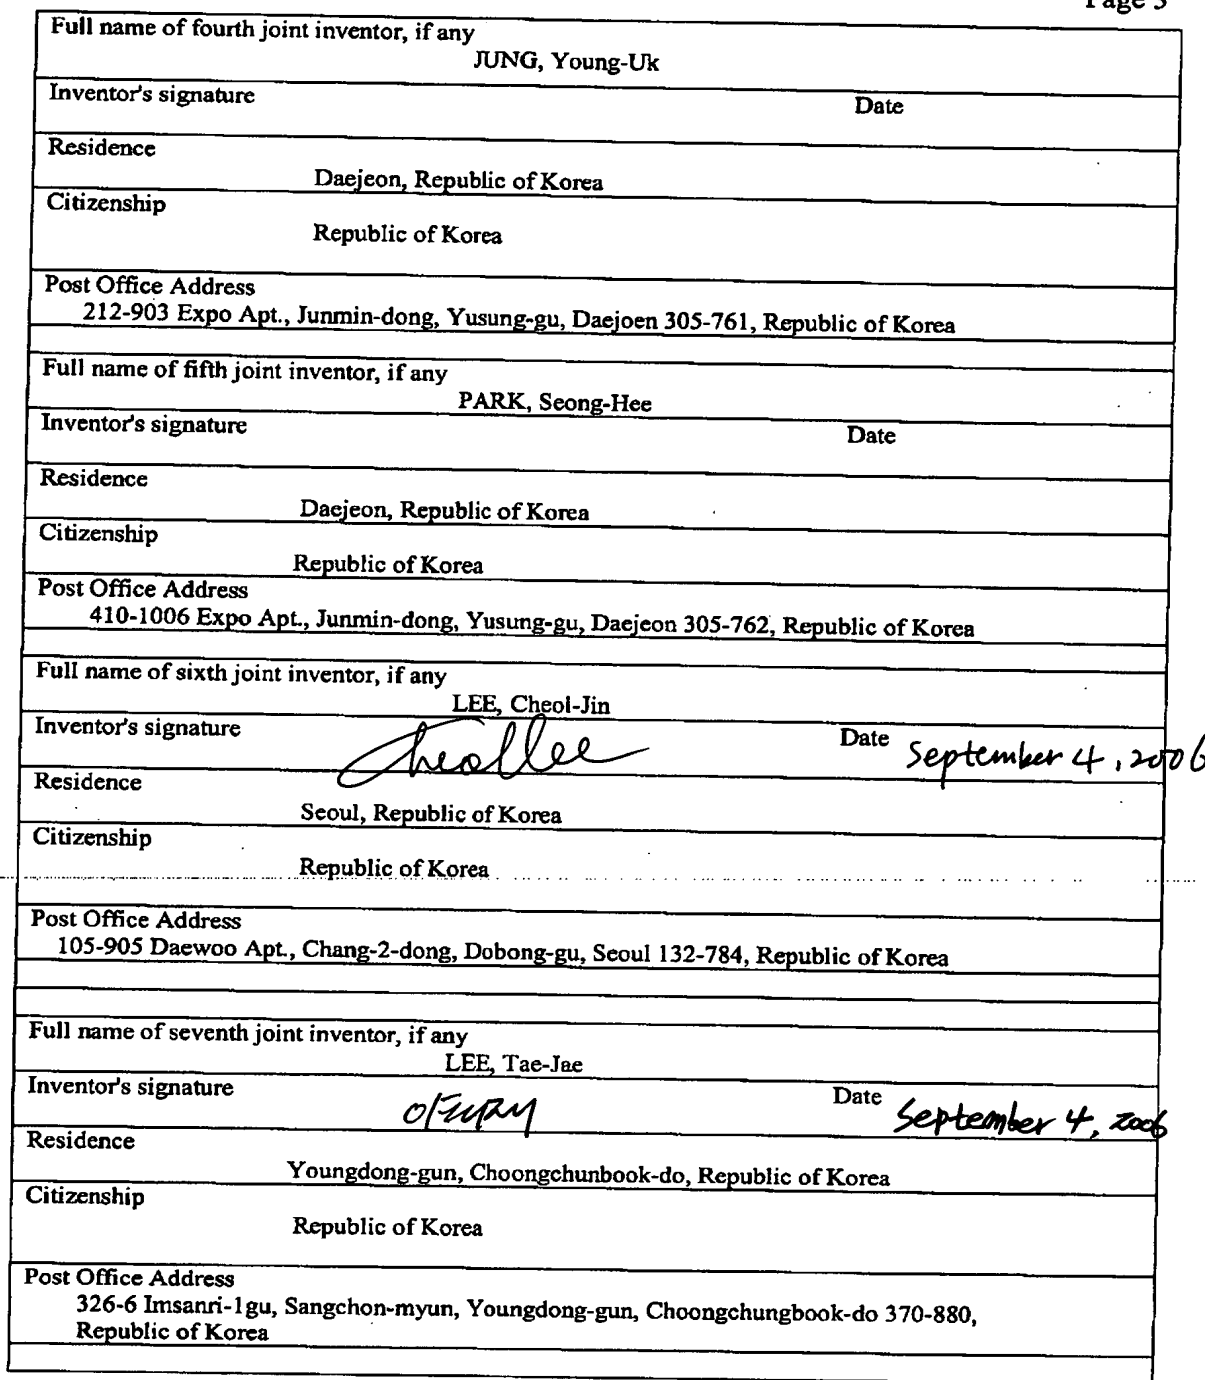 Page 3
Full name of fourth joint inventor, if any
JUNG, Young-Uk
Inventor's signature Date
Residence
Daejeon, Republic of Korea
Citizenship
Republic of Korea
Post Office Address
212-903 Expo Apt., Junmin-dong, Yusung-gu, Daejoen 305-761, Republic of Korea
Full name of fifth joint inventor, if any
PARK, Seong-Hee
Inventor's signature Date
Residence
Daejeon, Republic of Korea
Citizenship
Republic of Korea
Post Office Address
410-1006 Expo Apt., Junmin-dong, Yusung-gu, Daejeon 305-762, Republic of Korea
Full name of sixth joint inventor, if any
LEE, Cheol-Jin
Inventor's signature Date September 4, 2006
Residence
Seoul, Republic of Korea
Citizenship
Republic of Korea
Post Office Address
105-905 Daewoo Apt., Chang-2-dong, Dobong-gu, Seoul 132-784, Republic of Korea
Full name of seventh joint inventor, if any
LEE, Tae-Jae
Inventor's signature Date September 4, 2006
Residence
Youngdong-gun, Choongchunbook-do, Republic of Korea
Citizenship
Republic of Korea
Post Office Address
326-6 Imsanri-1gu, Sangchon-myun, Youngdong-gun, Choongchungbook-do 370-880,
Republic of Korea